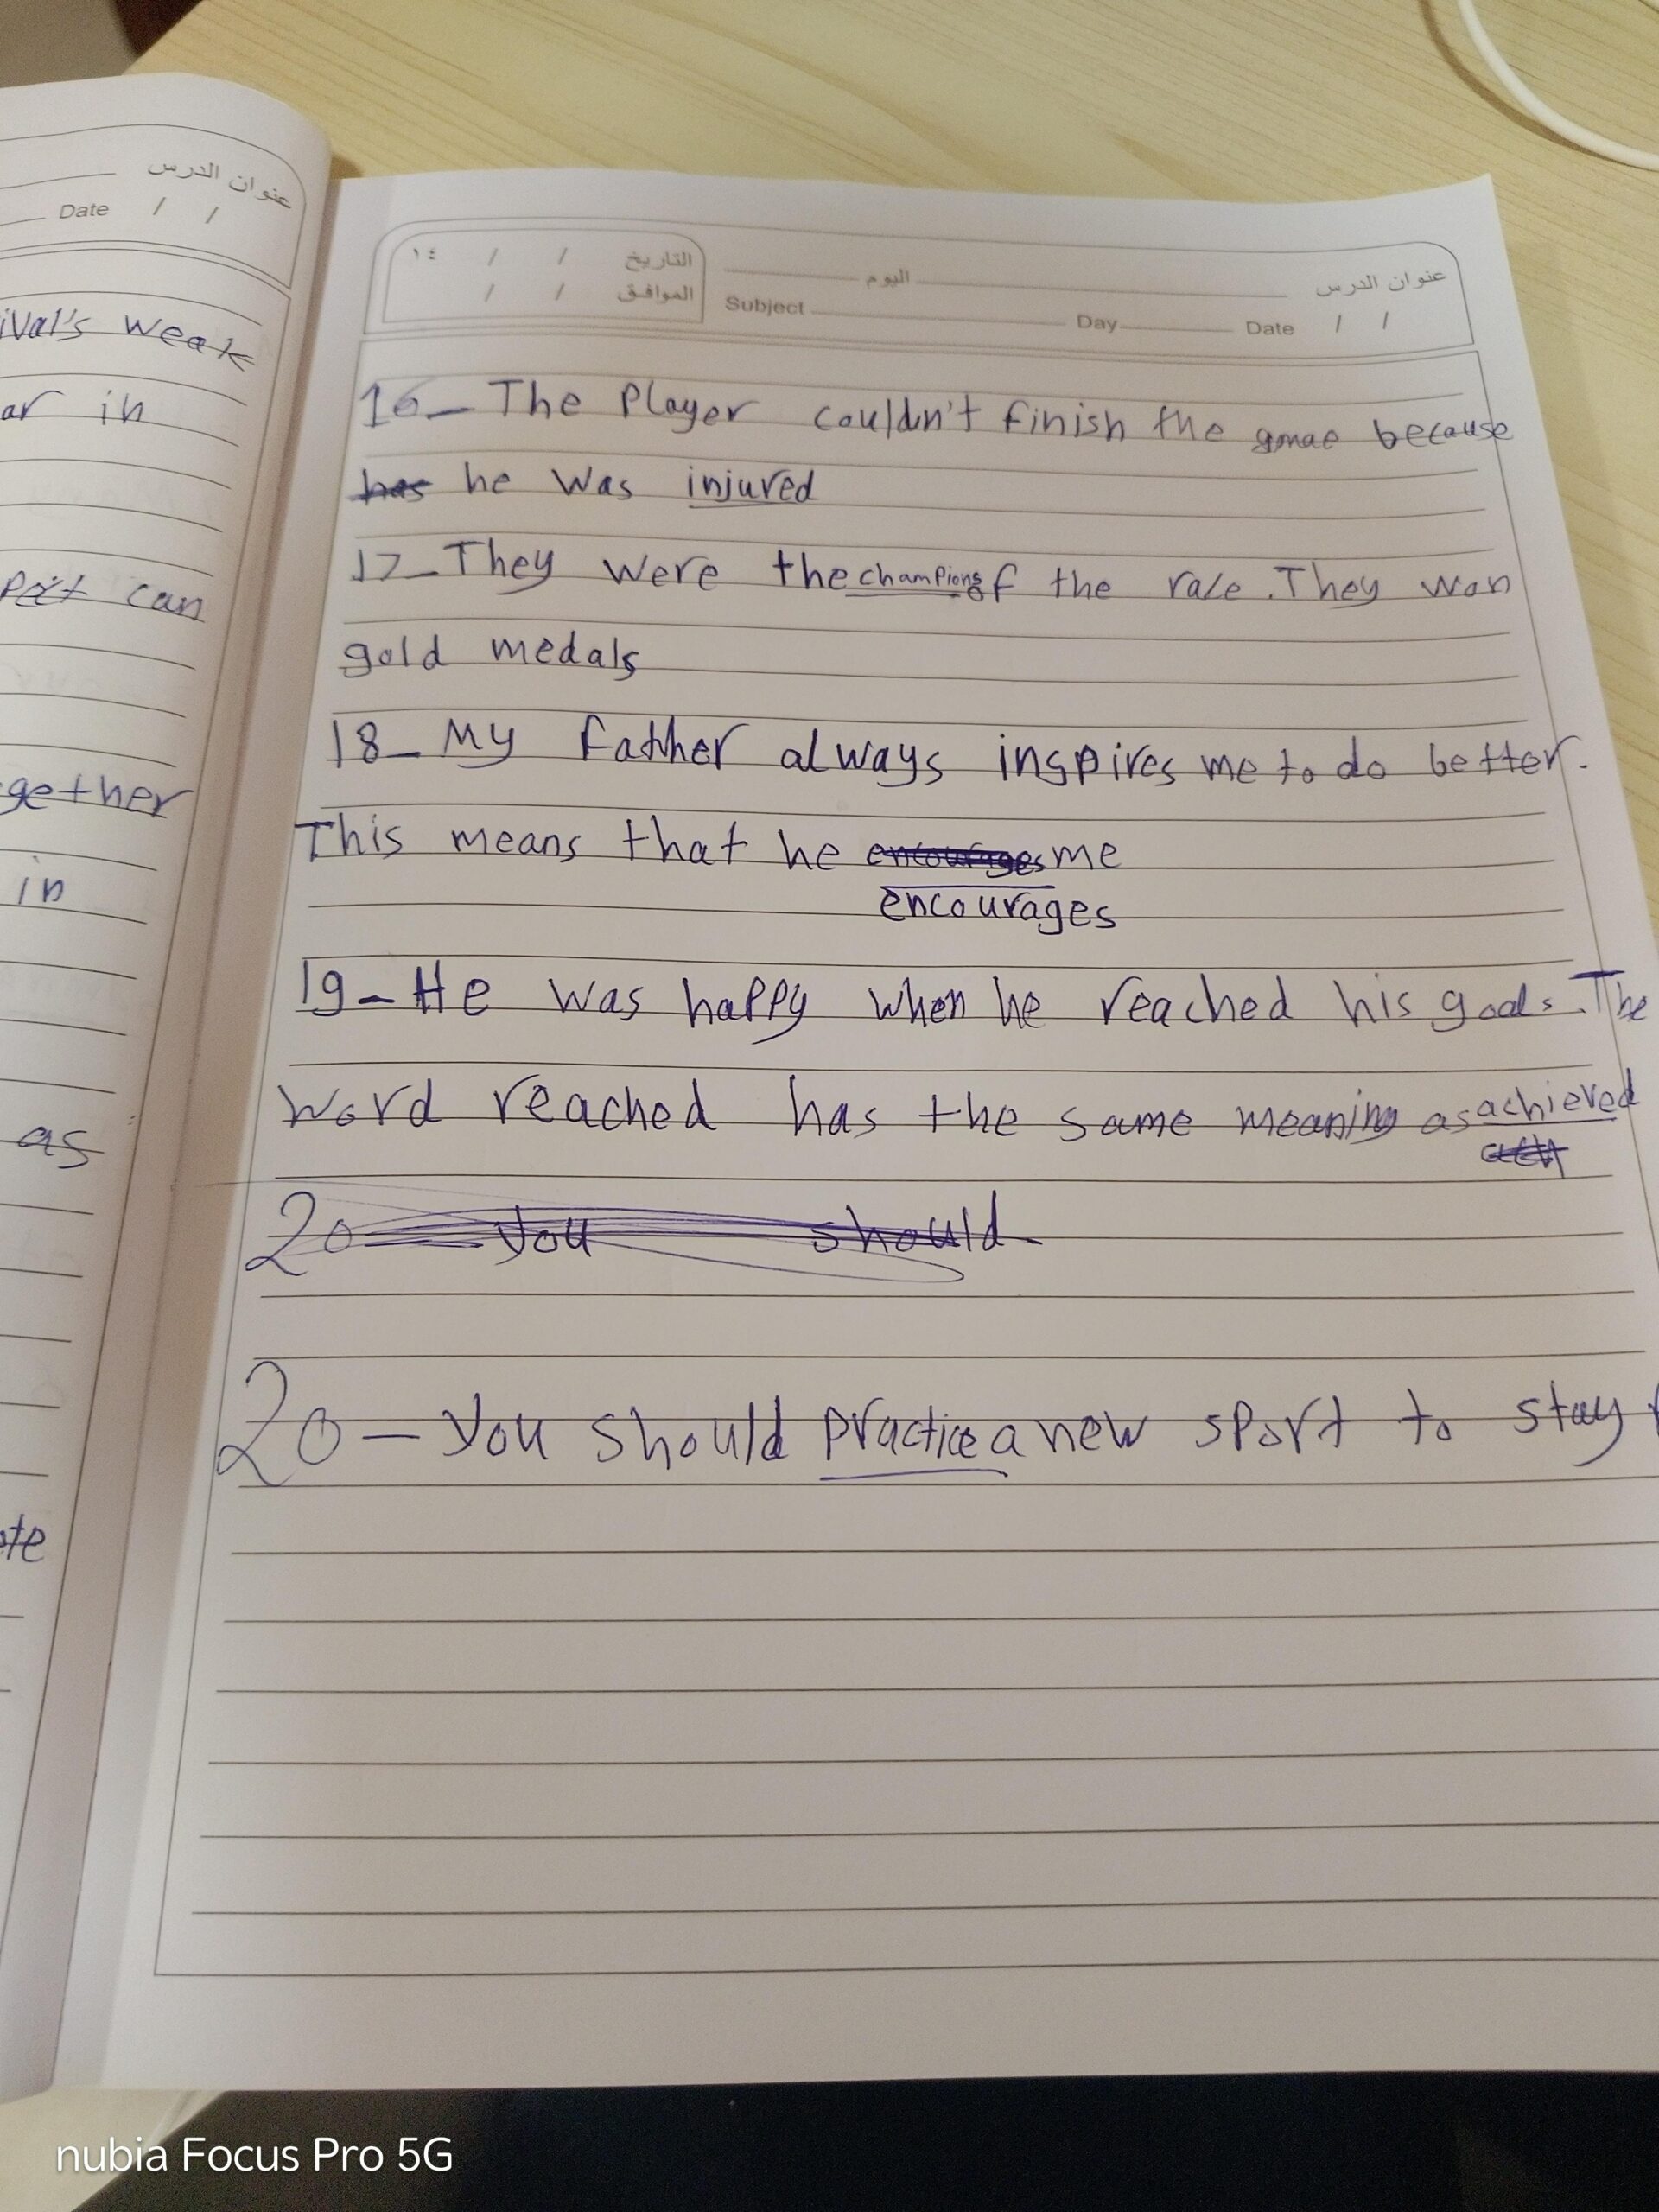 عنوان الدرس
Date / /
ival's weak
ar in
can
gether
in
as
١٤ / / التاريخ
/ / الموافق
اليوم
عنوان الدرس
Subject Day Date / /
16_ The Player couldn't finish the gmae because
has he was injured
17_ They were the champions of the race. They won
gold medals
18_ My father always inspires me to do better.
This means that he encourages me
encourages
19_ He was happy when he reached his goals. The
word reached has the same meaning as achieved
20 you should
20 - you should practice a new sport to stay
nubia Focus Pro 5G